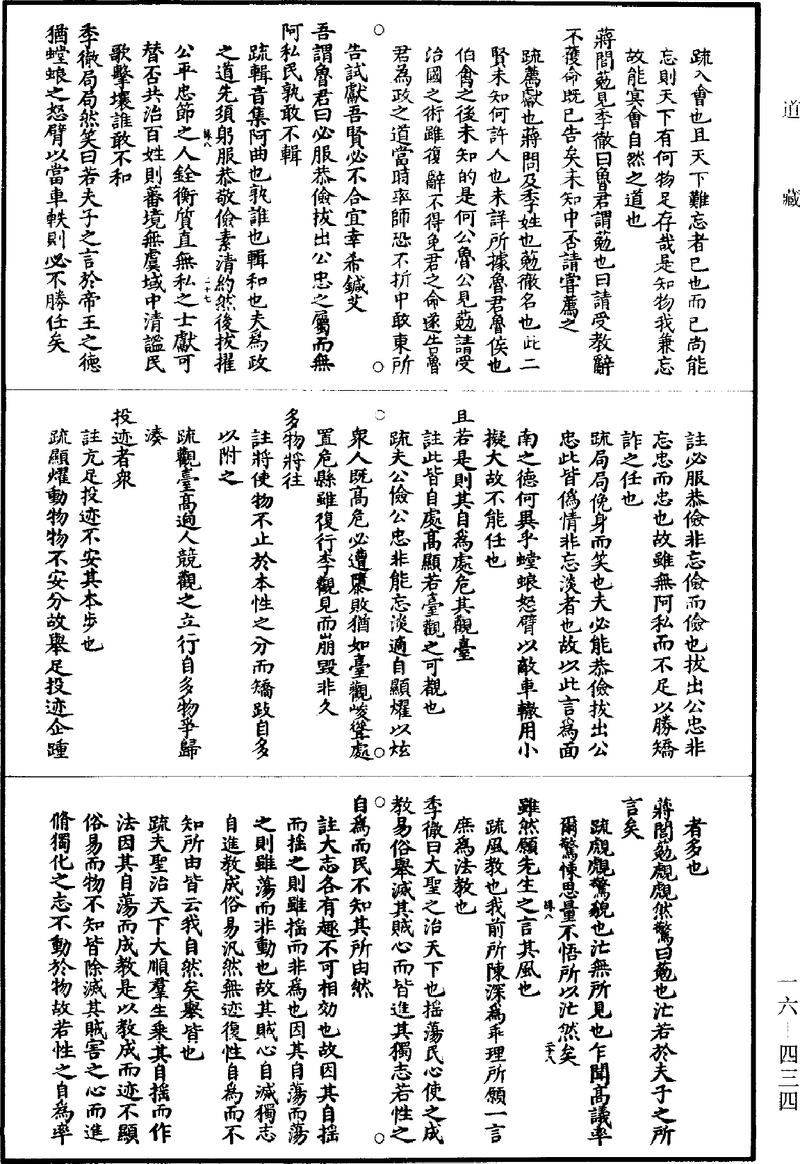 道藏
疏入會也且天下難忘者己也而已尚能
忘則天下有何物足存哉是知物我兼忘
故能冥會自然之道也
蔣閭葂見季徹曰魯君謂葂也曰請受教辭
不獲命既已告矣未知中否請嘗薦之
疏薦獻也蔣閭及季姓也葂徹名也此二
賢未知何許人也未詳所據魯君魯侯也
伯禽之後未知的是何公魯公見葂請受
治國之術雖復辭不得免君之命遂告魯
君為政之道當時率師恐不折中敢東所
告試獻吾賢必不合宜幸希鍼艾
吾謂魯君曰必服恭儉拔出公忠之屬而無
阿私民孰敢不輯
疏輯音集阿曲也孰誰也輯和也夫為政
之道先須躬服恭敬儉素清約然後拔擢
公平忠節之人銓衡質直無私之士獻可
替否共治百姓則蕃境無虞域中清謐民
歌擊壤誰敢不和
季徹局局然笑曰若夫子之言於帝王之德
猶螳蜋之怒臂以當車軼則必不勝任矣
註必服恭儉非忘儉而儉也拔出公忠非
忘忠而忠也故雖無阿私而不足以勝矯
詐之任也
疏局局俛身而笑也夫必能恭儉拔出公
忠此皆偽情非忘淡者也故以此言為面
南之德何異乎螳蜋怒臂以敵車轍用小
擬大故不能任也
且若是則其自為處危其觀臺
註此皆自處高顯若臺觀之可觀也
疏夫公儉公忠非能忘淡適自顯燿以炫
衆人既高危必遭隳敗猶如臺觀峻聳處
置危縣雖復行李觀見而崩毀非久
多物將往
註將使物不止於本性之分而矯跂自多
以附之
疏觀臺高過人競觀之立行自多物爭歸
湊
投迹者衆
註亢足投迹不安其本步也
疏顯燿動物物不安分故舉足投迹企踵
者多也
蔣閭葂覤覤然驚曰葂也汒若於夫子之所
言矣
疏覤覤驚貌也汒無所見也乍聞高議率
爾驚悚思量不悟所以汒然矣
雖然願先生之言其風也
疏風教也我前所陳深為乖理所願一言
庶為法教也
季徹曰大聖之治天下也搖蕩民心使之成
教易俗舉滅其賊心而皆進其獨志若性之
自為而民不知其所由然
註大志各有趣不可相効也故因其自搖
而搖之則雖搖而非為也因其自蕩而蕩
之則雖蕩而非動也故其賊心自滅獨志
自進教成俗易汎然無迹復性自為而不
知所由皆云我自然矣舉皆也
疏夫聖治天下大順羣生乘其自搖而作
法因其自蕩而成教是以教成而迹不顯
俗易而物不知皆除滅其賊害之心而進
脩獨化之志不動於物故若性之自為率
一六—四三四